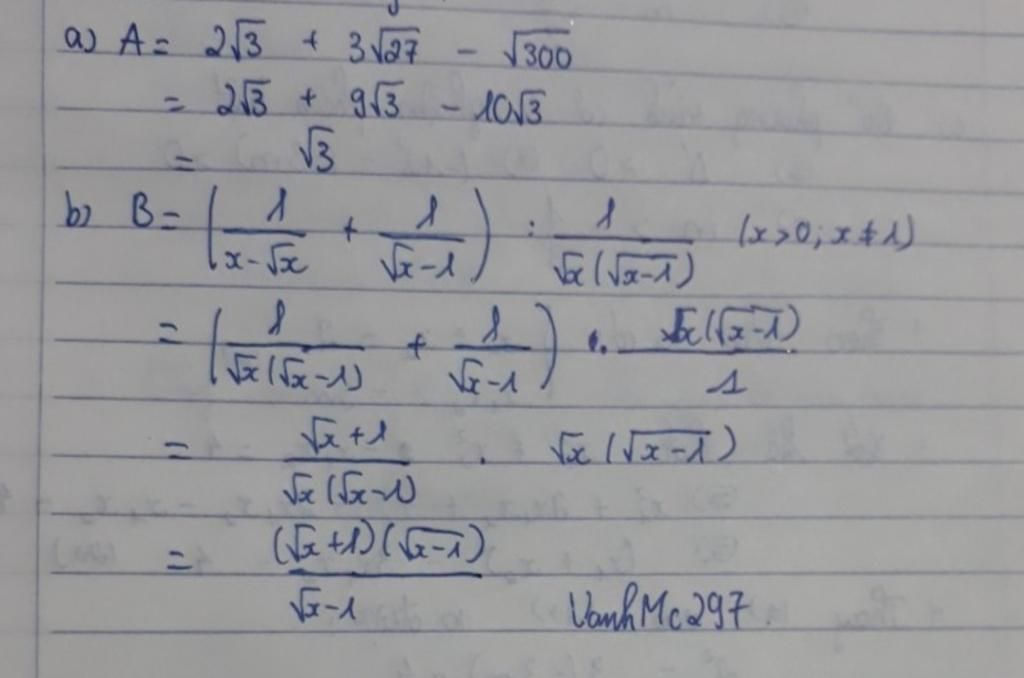 a) A = 2√3 + 3√27 - √300
= 2√3 + 9√3 - 10√3
= √3
b) B = (1/(x-√x) + 1/(√x-1)) : 1/(√x(√(x-1))) (x>0; x≠1)
= (1/(√x(√x-1)) + 1/(√x-1)) · √x(√(x-1))/1
= (√x+1)/(√x(√x-1)) · √x(√(x-1))
= (√x+1)(√(x-1))/(√x-1)
VanhMc297